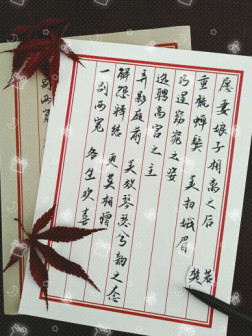 愿妻娘子相离之后
重梳蝉鬓 美扫娥眉
巧逞窈窕之姿
选聘高官之主
弄影庭前 美效琴瑟合韵之态
解怨释结 更莫相憎
一别两宽 各生欢喜